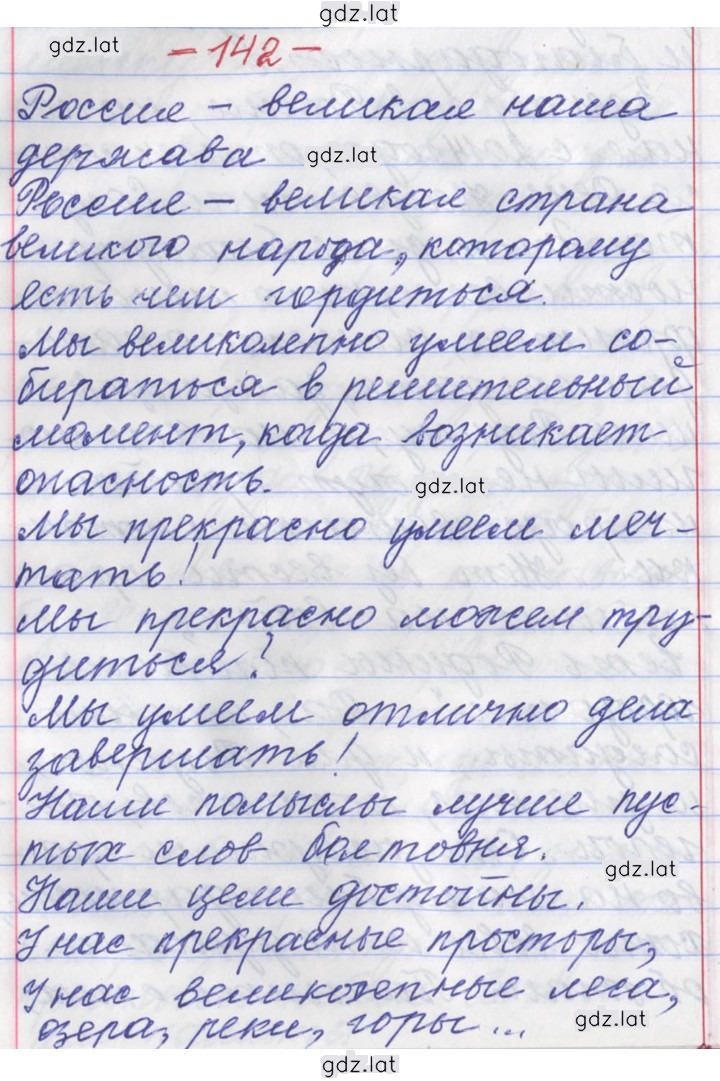 gdz.lat
gdz.lat
- 142 -
Россия - великая наша
держава
gdz.lat
Россия - великая страна
великого народа, которому
есть чем гордиться.
Мы великолепно умеем со-
бираться в решительный
момент, когда возникает
опасность.
gdz.lat
Мы прекрасно умеем меч-
тать!
Мы прекрасно можем тру-
диться!
Мы умеем отлично дела
завершать!
Наши помыслы лучше пус-
тых слов болтовня.
gdz.lat
Наши цели достойны.
У нас прекрасные просторы,
У нас великолепные леса,
озера, реки, горы...
gdz.lat
gdz.lat